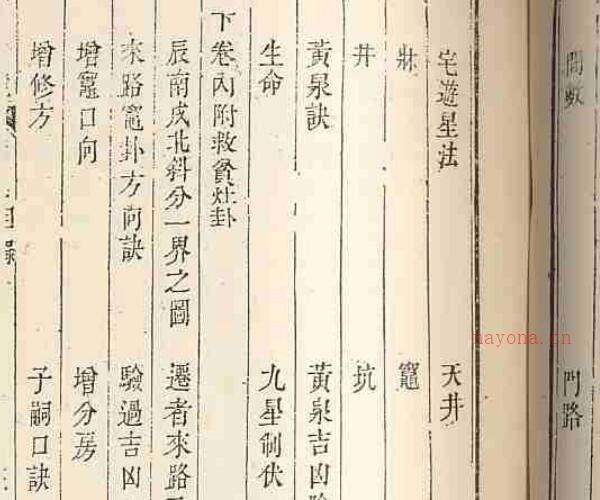 間數
門路
宅遊星法
天井
牀
竈
井
坑
黃泉訣
黃泉吉凶
生命
九星制伏
下卷內附救貧灶卦
辰南戌北斜分一界之圖
遷者來路
來路竈卦方向訣
驗過吉凶
增竈口向
增分房
增修方
子嗣口訣
nayona.cn